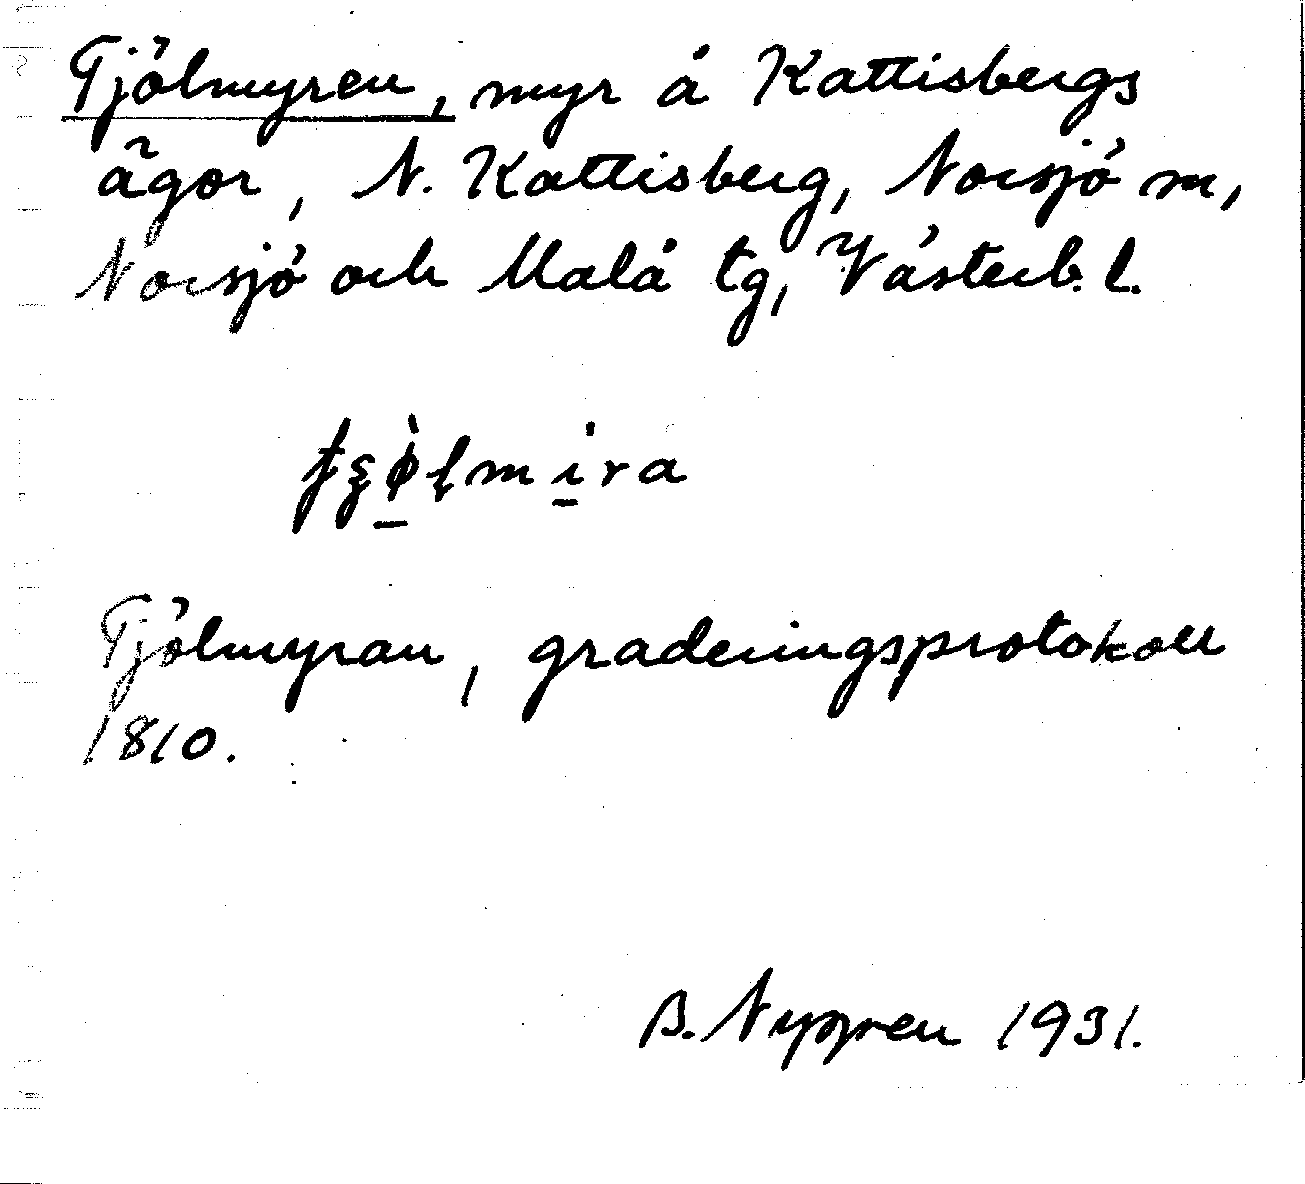 Tjölmyren, myr å Kattisbergs
ägor, N. Kattisberg, Norsjö sn,
Norsjö och Malå tg, Västerb. l.
Tjölmyran, graderingsprotokoll
1810.
B. Nyggren 1931.